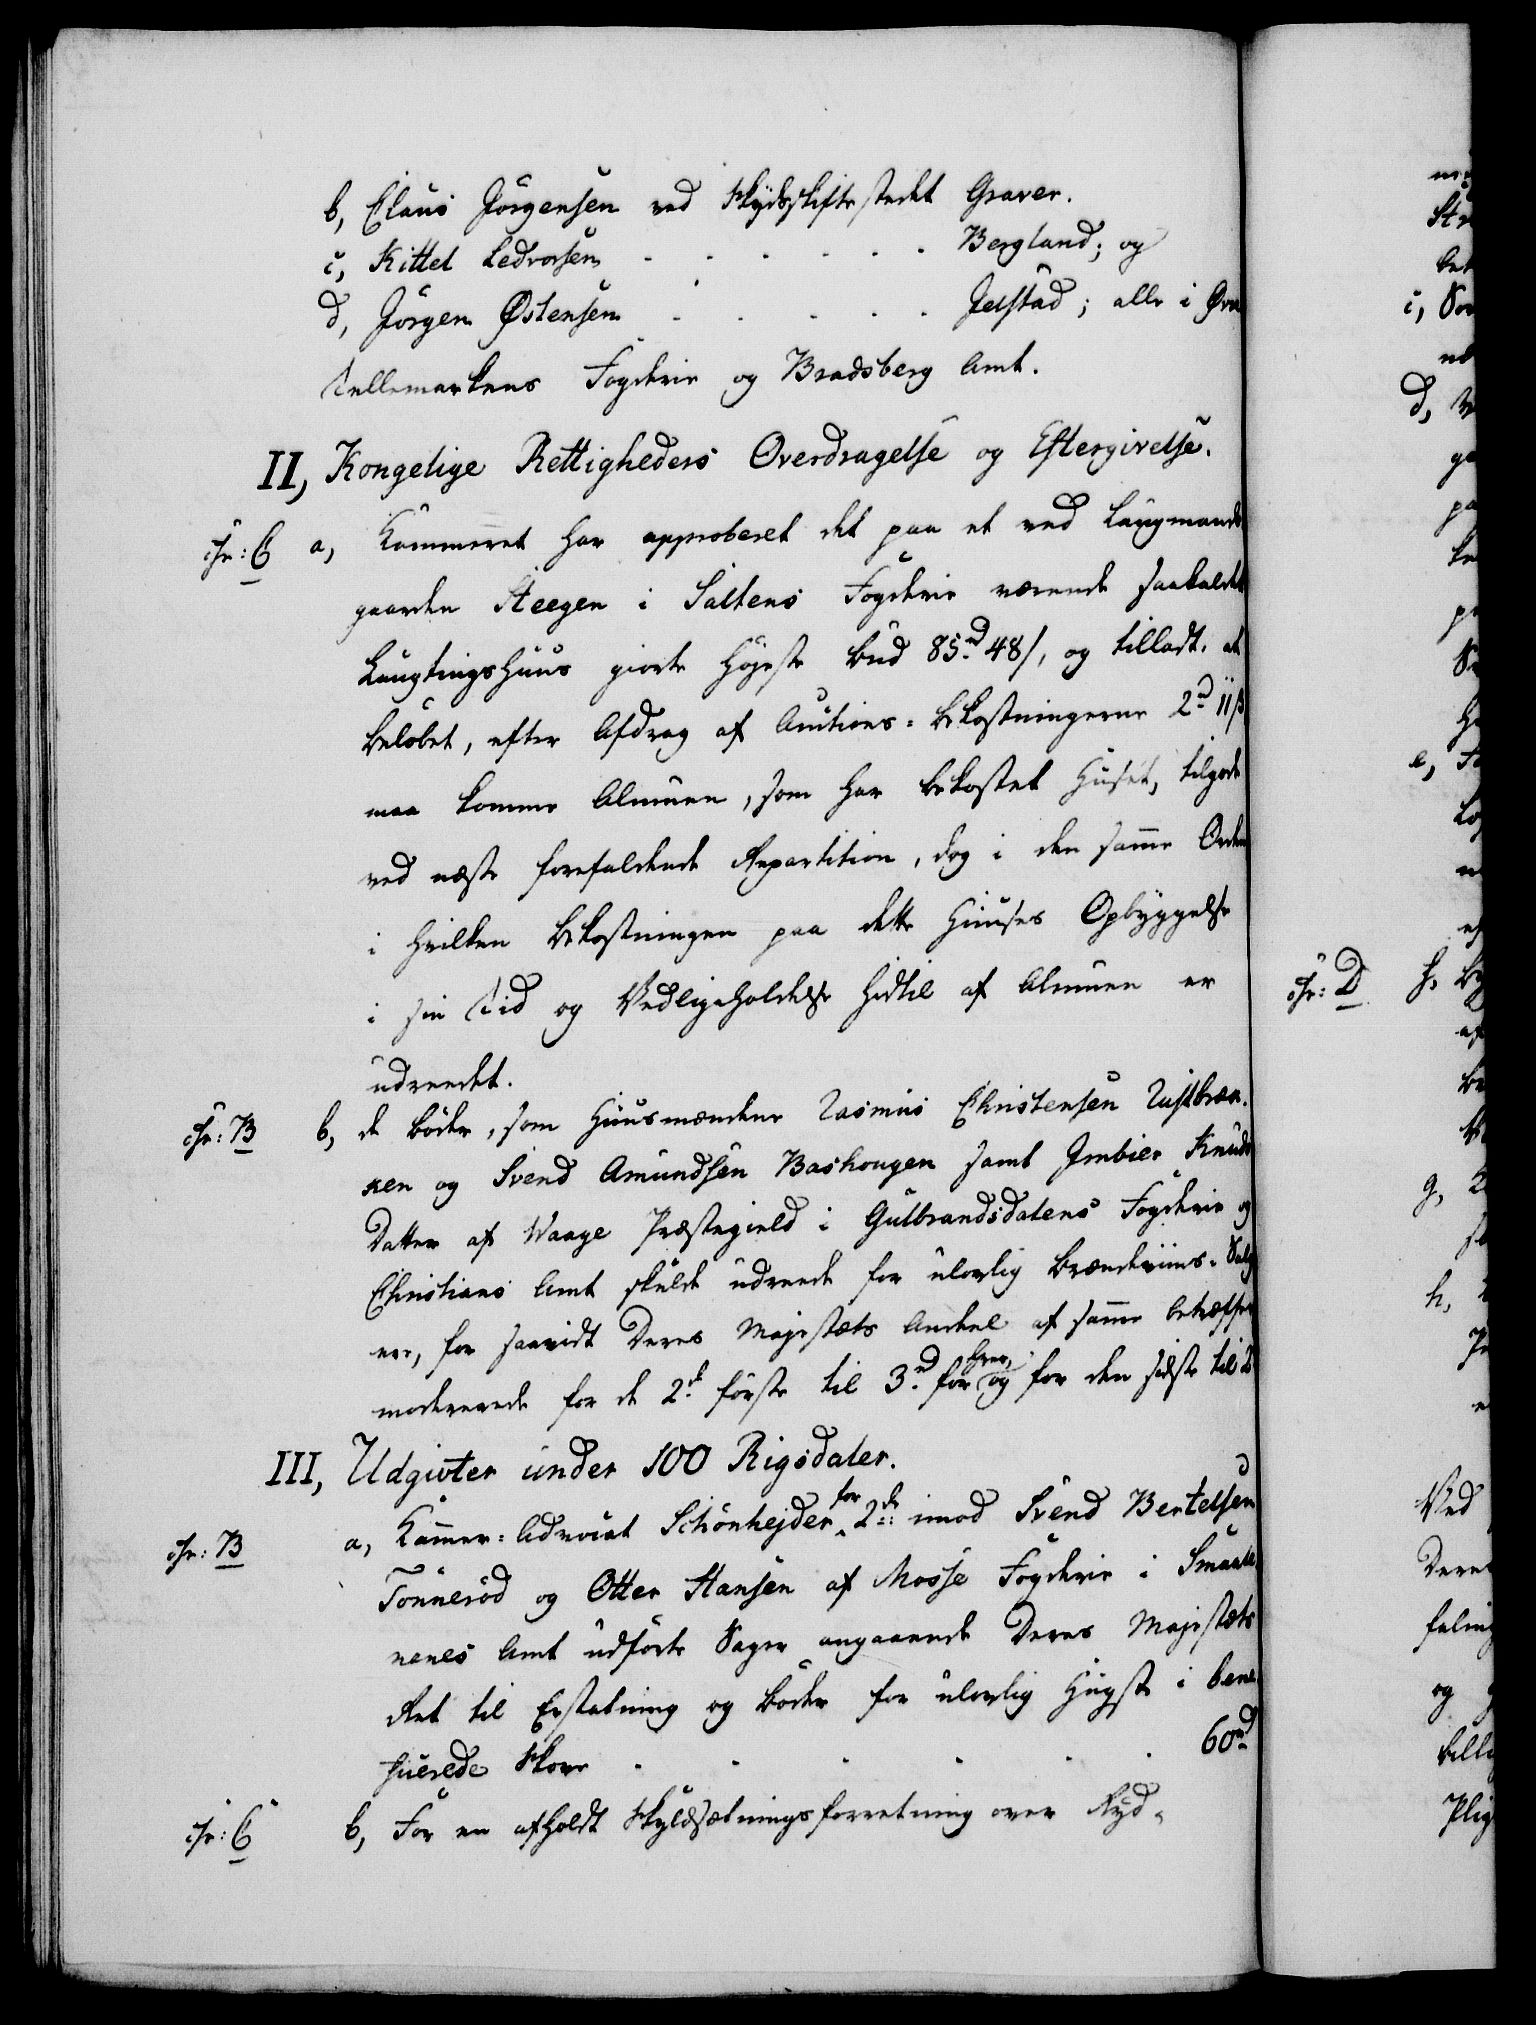 b, Claus Jörgensen ved Skydsskiftestedet Graver.
c, Kittel Ledvorsen - - - - - - Bergland; og
d, Jörgen Østensen - - - - - Jelstad; alle i Øvre
Tellemarkens Fogderie og Bradsberg Amt.
II, Kongelige Rettigheders Overdragelse og Eftergivelse.
Chr: C a, Kammeret har approberet det paa et ved Laugmands
gaarden Steegen i Saltens Fogderie værende saakaldet
Laugtingshuus giorte höjeste Bud 85rd 48 s, og tilladt, at
Belöbet, efter Afdrag af Auctions-Bekostningerne 2rd 11 s
maa komme Almuen, som har bekostet Huset, tilgode
ved næste forefaldende Repartition, dog i den samme Orden
i hvilken Bekostningen paa dette Huuses Opbyggelse
i sin Tid og Vedligeholdelse hidtil af Almuen er
udreedet.
Chr: B b, de Böder, som Huusmændene Rasmus Christensen Rustbræk-
ken og Svend Amundsen Bashougen samt Imbier Knuds
Datter af Waage Præstegield i Gulbrandsdalens Fogderie og
Christians Amt skulde udreede for ulovlig Brændeviins-Salg
ere, for saavidt Deres Majestæts Andeel af samme betræffer
modererede for de 2de förste til 3rd for hver, og for den sidste til 2
III, Udgivter under 100 Rigsdaler.
Chr: B a, Kammer-Advocat Schönhejder for 2de imod Svend Bertelsen
Tönneröd og Otter Hansen af Mosse Fogderie i Smaale-
nenes Amt udförte Sager angaaende Deres Majestæts
Ret til Erstatning og Böder for ulovlig Hugst i bene-
ficerede Skove - - - - - 60rd
Chr: C b, For en afholdt Skyldsætningsforretning over Ryd-
Chr: D